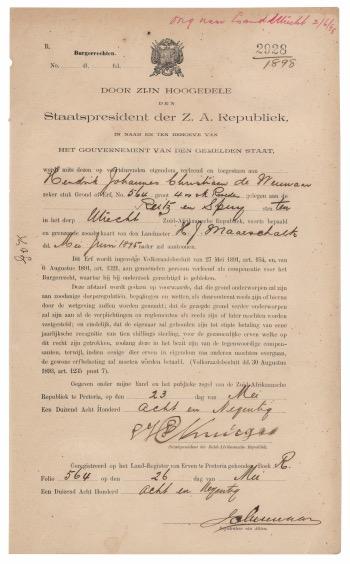 2028
1898
B.
Burgerrechten.
No. d. fol.
DOOR ZIJN HOOGEDELE
DEN
Staatspresident der Z. A. Republiek,
IN NAAM EN TEN BEHOEVE VAN
HET GOUVERNEMENT VAN DEN GEMELDEN STAAT,
werdt mits dezen op eigendom verleend en toegestaan aan
Hendrik Johannes Christiaan de
zeker stuk Grond of Erf, No. 564 groot gelegen aan de
en
in het dorp Utrecht Zuid-Afrikaansche Republiek, voorts bepaald
en grenzende zooals kaart van den Landmeter H. J. Maarschalk
dd. Mei Juni 1895 nader zal aantoonen.
Dit Erf wordt ingevolge Volksraadsbesluit van 27 Mei 1891, art. 254, en van
6 Augustus 1891, art. 1221, aan genoemden persoon verleend als compensatie voor het
Burgerrecht, waartoe hij bij onderzoek gerechtigd is gebleken.
Deze afstand wordt gedaan op voorwaarde, dat die grond onderworpen zal zijn
aan zoodanige dorpsregulaties, bepalingen en wetten, als dienaangaande reeds zijn of hierna
door de wetgeving worden gemaakt; dat de gezegde grond verder onderworpen zal
zijn aan al de verplichtingen en reglementen als reeds zijn of later mochten worden
vastgesteld; en eindelijk, dat de eigenaar zal gehouden zijn tot stipte betaling van eene
jaarlijksche recognitie van tien shillings sterling, voor de gezamenlijke erven welke op
dit recht zijn getrokken, zoolang deze in het bezit zijn van de tegenwoordige compen-
santen, terwijl, indien eenige dier erven in eigendom van anderen mochten overgaan,
de gewone erfbelasting zal moeten worden betaald. (Volksraadsbesluit dd. 30 Augustus
1893, art. 1235 punt 7).
Gegeven onder mijne hand en het publieke zegel van de Zuid-Afrikaansche
Republiek te Pretoria, op den 23 dag van Mei
Een Duizend Acht Honderd acht en Negentig
Staatspresident der Zuid-Afrikaansche Republiek.
Geregistreerd op het Land-Register van Erven te Pretoria gehouden, Boek R.
Folio 564 op den 26 dag van Mei
Een Duizend Acht Honderd acht en Negentig
Registrateur van Akten.